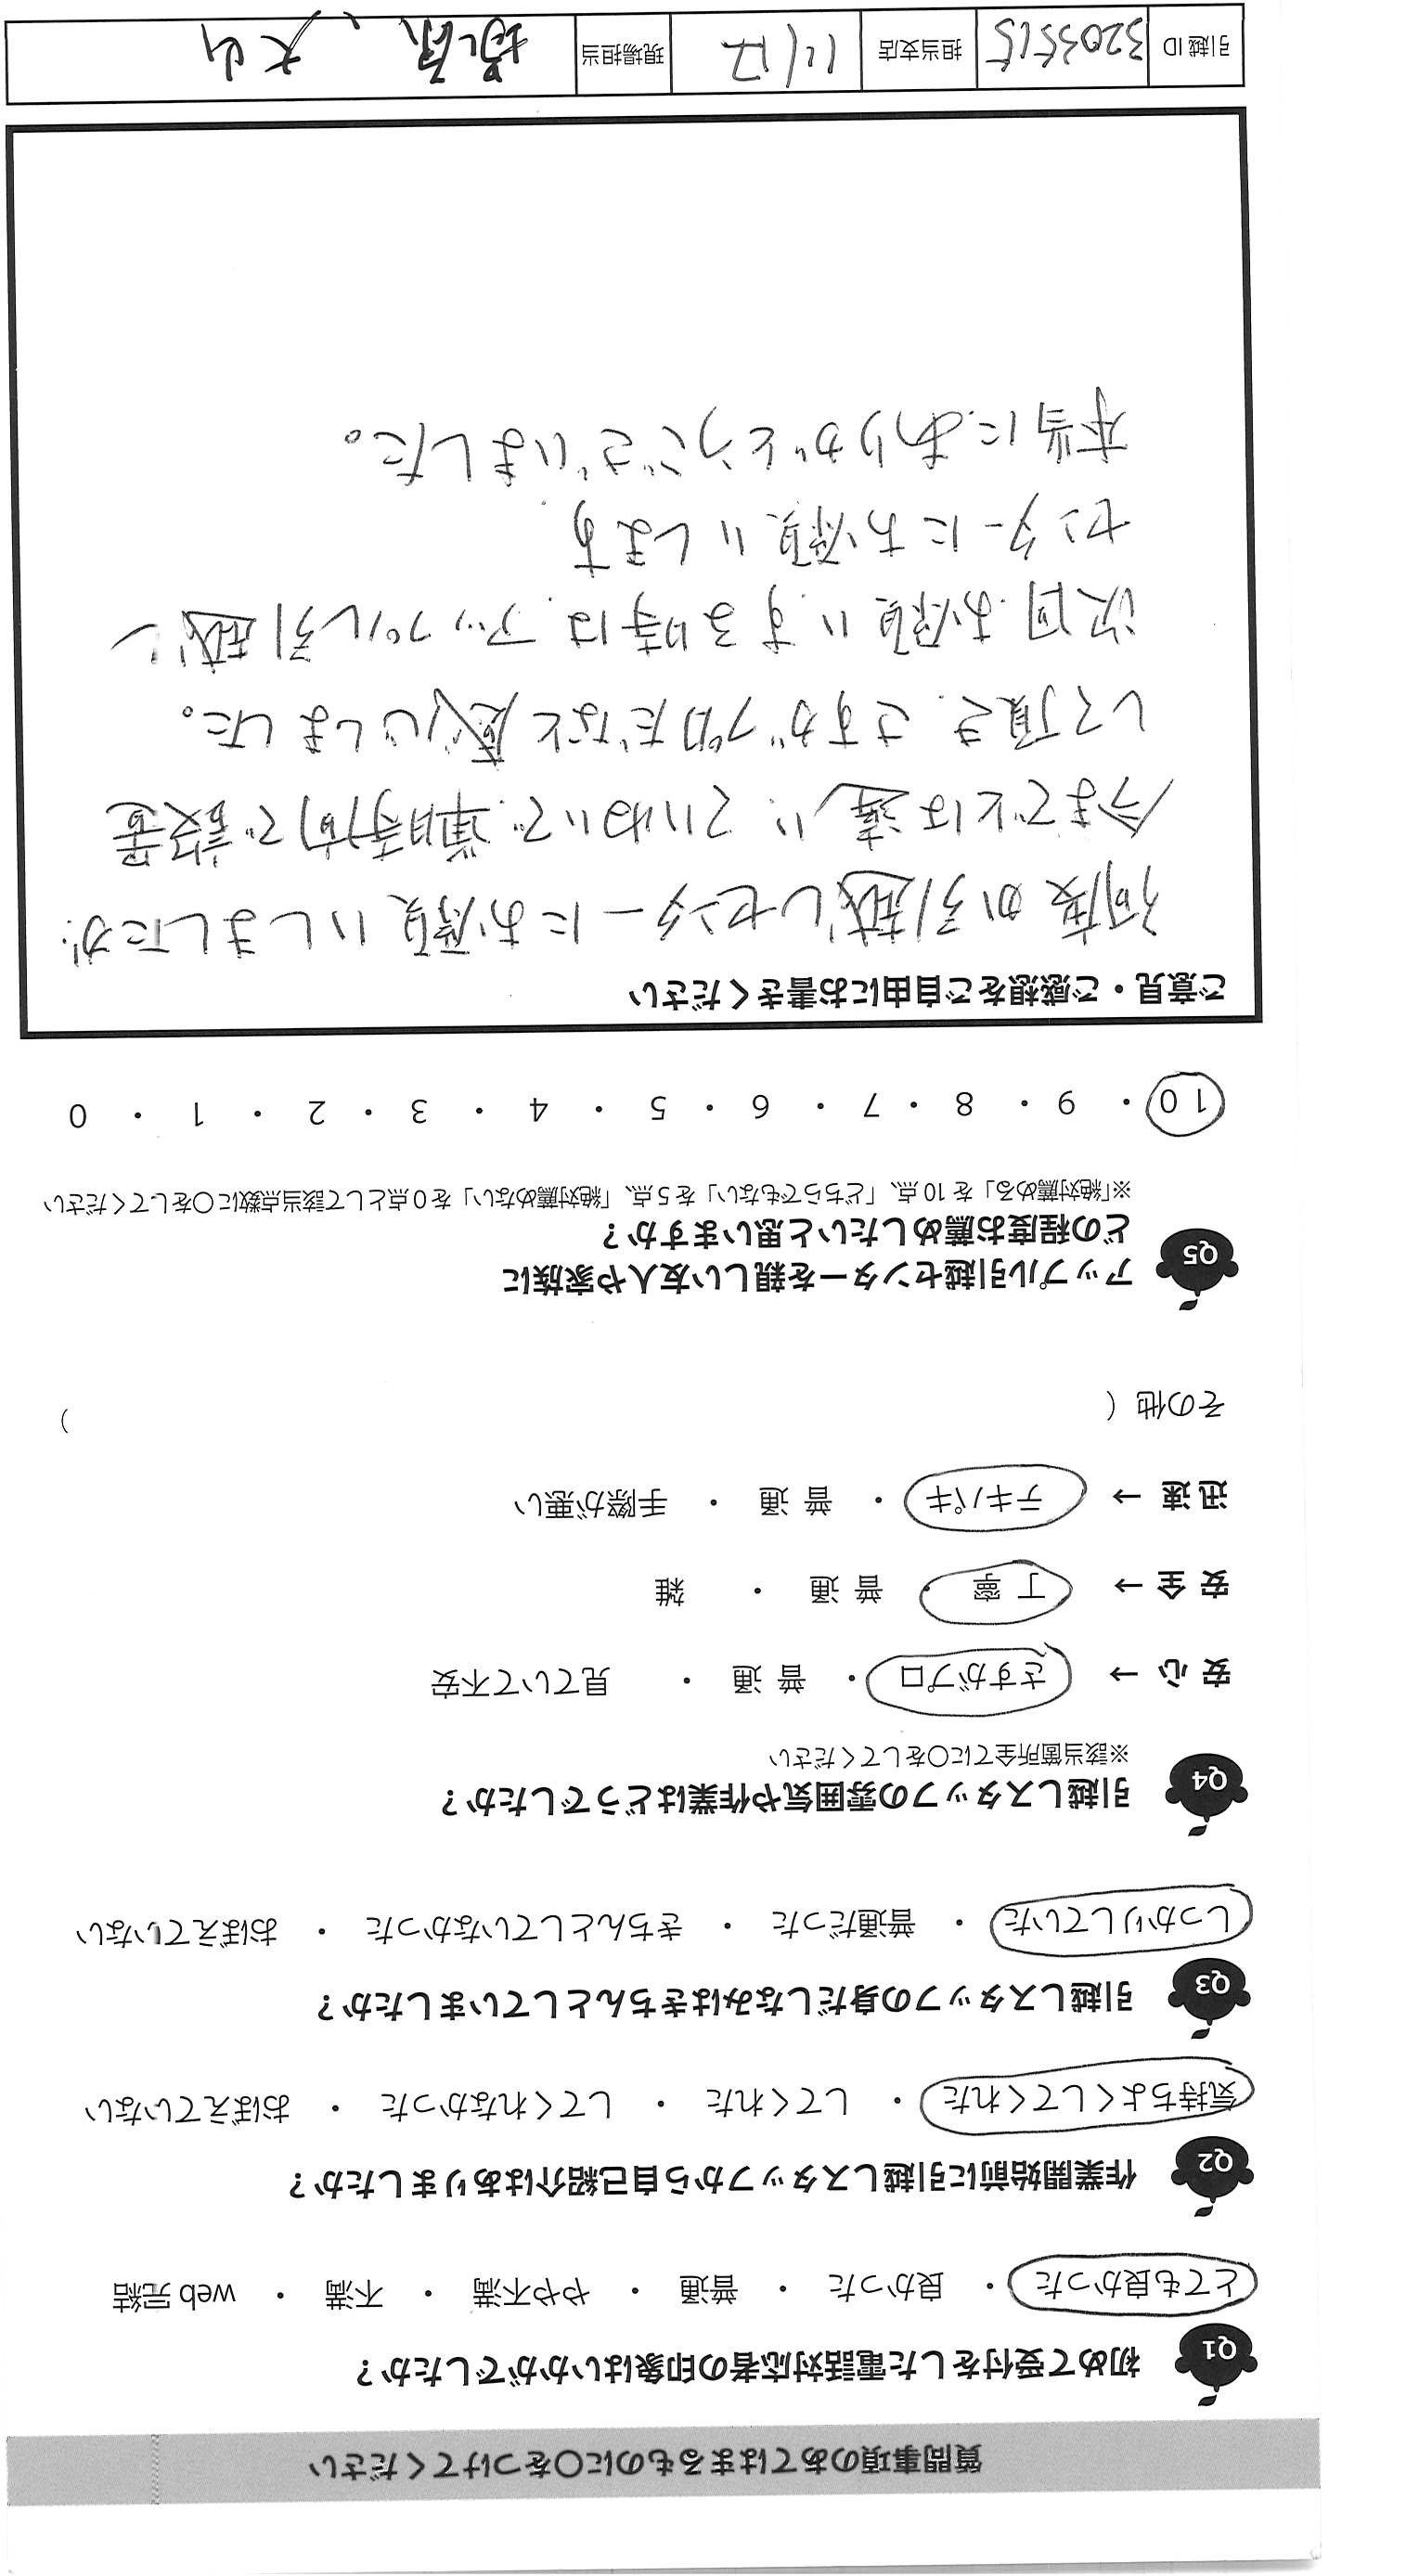 質問事項のあてはまるものに〇をつけてください
Q1 初めて受付をした電話対応者の印象はいかがでしたか？
とても良かった ・ 良かった ・ 普通 ・ やや不満 ・ 不満 ・ web 完結
Q2 作業開始前に引越しスタッフから自己紹介はありましたか？
気持ちよくしてくれた ・ してくれた ・ してくれなかった ・ おぼえていない
Q3 引越しスタッフの身だしなみはきちんとしていましたか？
しっかりしていた ・ 普通だった ・ きちんとしていなかった ・ おぼえていない
Q4 引越しスタッフの雰囲気や作業はどうでしたか？
※該当箇所全てに〇をしてください
安 心 → さすがプロ ・ 普 通 ・ 見ていて不安
安 全 → 丁 寧 ・ 普 通 ・ 雑
迅 速 → テキパキ ・ 普 通 ・ 手際が悪い
その他（ ）
Q5 アップル引越センターを親しい友人や家族に
どの程度お薦めしたいと思いますか？
※「絶対薦める」を 10 点、「どちらでもない」を 5 点、「絶対薦めない」を 0 点として該当点数に〇をしてください
10 ・ 9 ・ 8 ・ 7 ・ 6 ・ 5 ・ 4 ・ 3 ・ 2 ・ 1 ・ 0
ご意見・ご感想をご自由にお書きください
何度か引越しセンターにお願いしましたが、
今までとは違い、ていねいで、短時間で設置
して頂き、さすがプロだなと感心しました。
次回、お願いする時は、アップル引越し
センターにお願いします
本当にありがとうございました。
引越 ID 3203515 担当支店 11/17 現場担当 、大山